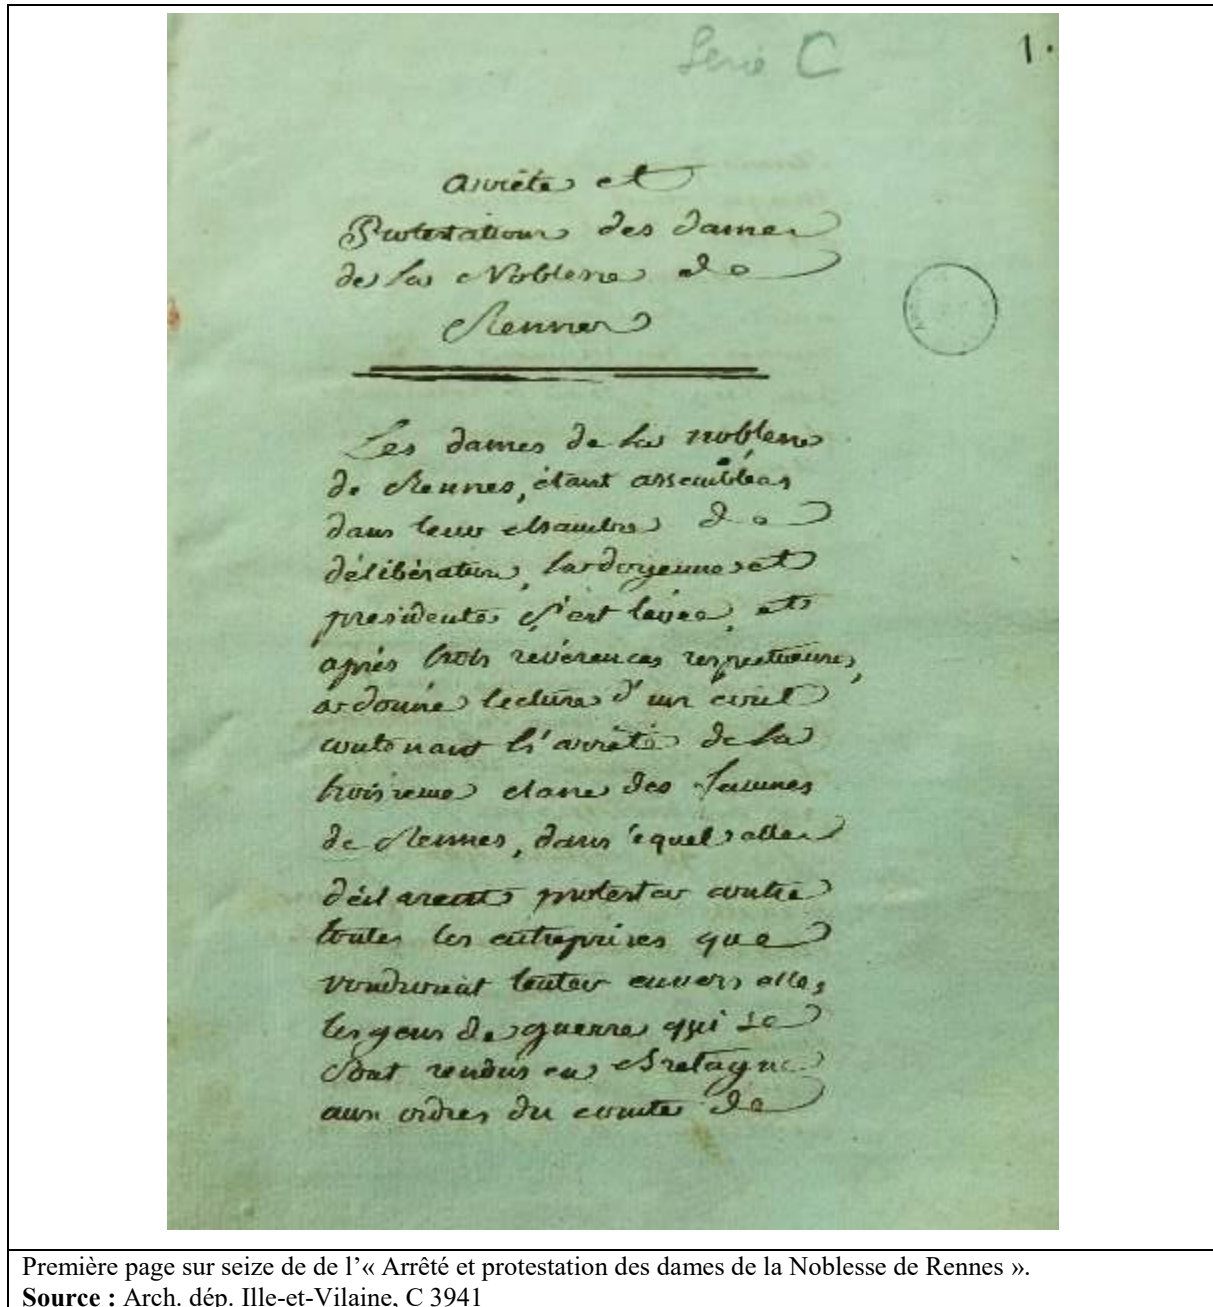 Serie C
1.
arrêté et
Protestations des dames
de la Noblesse de
Rennes
Les dames de la noblesse
de Rennes, étant assemblées
dans leur chambre de
délibération, la doyenne et
presidente s'est levée, et
après trois révérences respectueuses,
a ordonné lecture d'un écrit
contenant l'arrêté de la
troisieme classe des femmes
de Rennes, dans lequel elles
déclarent protester contre
toutes les entreprises que
voudroient tenter envers elles,
les gens de guerre qui se
sont rendus en Bretagne
aux ordres du comte de
Première page sur seize de de l'« Arrêté et protestation des dames de la Noblesse de Rennes ».
Source : Arch. dép. Ille-et-Vilaine, C 3941